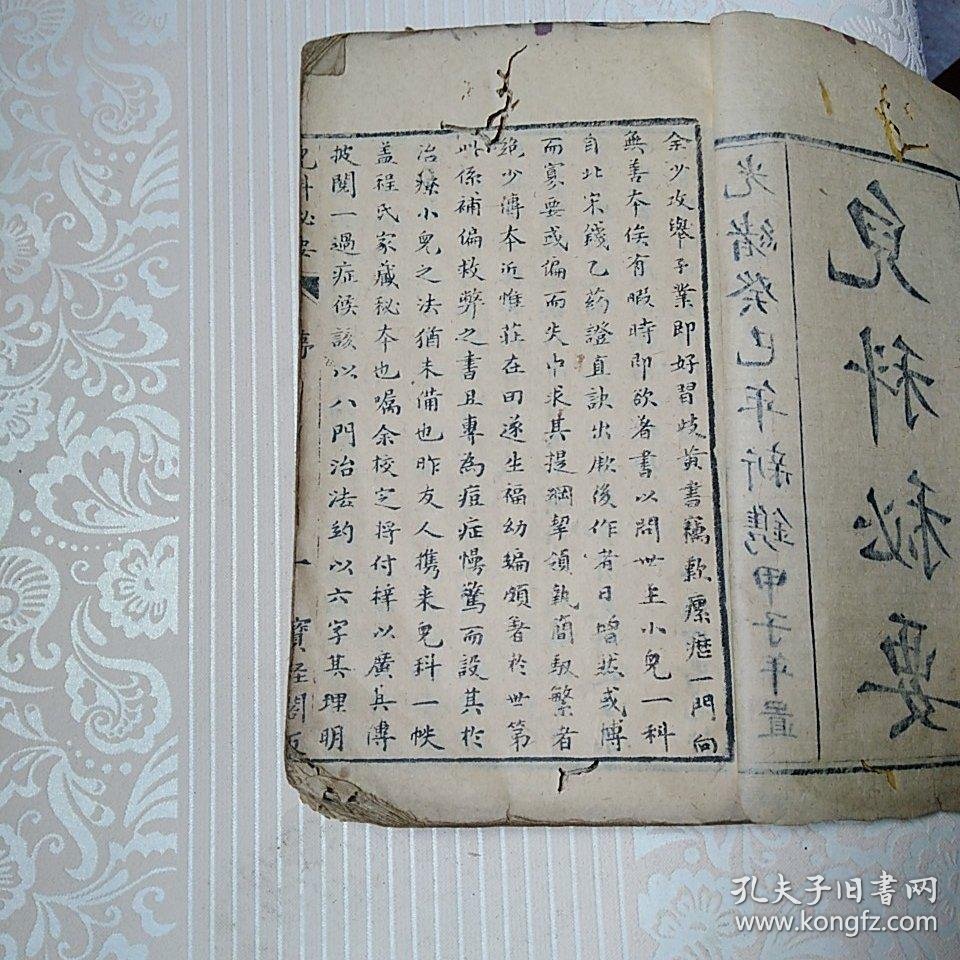 兒科秘要
光緒癸巳年新鐫甲子年置
余少攻舉子業即好習歧黃書竊歎瘰癧一門向
無善本俟有暇時即欲著書以問世至小兒一科
自北宋錢乙葯證直訣出厥後作者日增然或博
而寡要或偏而失中求其提綱挈領執簡馭繁者
絕少傳本近惟莊在田遂生福幼編頗著於世第
此係補偏救弊之書且專為痘症慢驚而設其於
治療小兒之法猶未備也昨友人携来兒科一帙
蓋程氏家藏秘本也囑余校定将付梓以廣其傳
披閱一過症候該以八門治法約以六字其理明
兒科秘要 序 一 寶經閣
孔夫子旧书网
www.kongfz.com